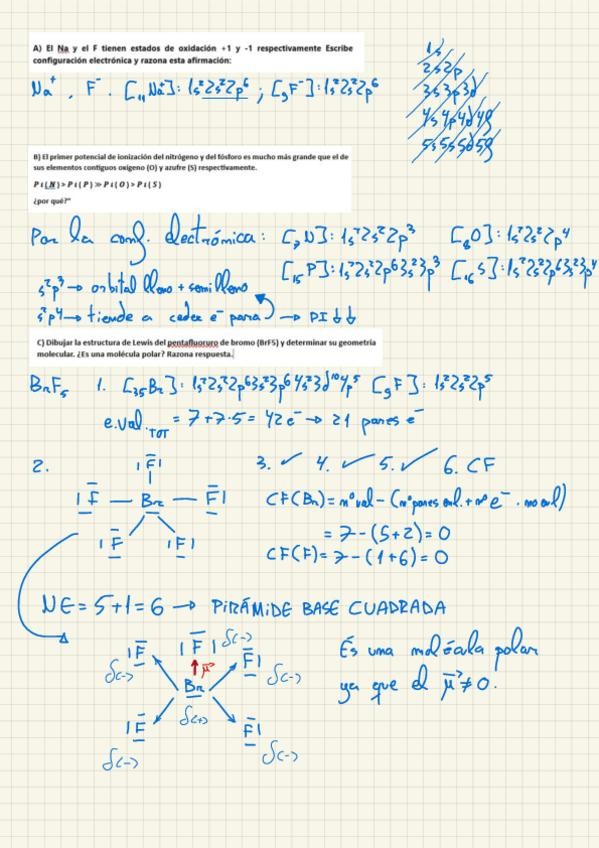 A) El Na y el F tienen estados de oxidación +1 y -1 respectivamente Escribe
configuración electrónica y razona esta afirmación:
Na⁺ . F⁻ . [₁₁Na⁺]: 1s²2s²2p⁶ ; [₉F⁻]: 1s²2s²2p⁶
1s
2s2p
3s3p3d
4s4p4d4f
5s5s5d5f
B) El primer potencial de ionización del nitrógeno y del fósforo es mucho más grande que el de
sus elementos contiguos oxigeno (O) y azufre (S) respectivamente.
Pi(N)>Pi(P)≫Pi(O)>Pi(S)
¿por qué?"
Por la conf. electrónica: [₇N]: 1s²2s²2p³ [₈O]: 1s²2s²2p⁴
[₁₅P]: 1s²2s²2p⁶3s²3p³ [₁₆S]: 1s²2s²2p⁶3s²3p⁴
s²p³ → orbital lleno + semilleno
s²p⁴ → tiende a ceder e⁻ para → PI ↓↓
C) Dibujar la estructura de Lewis del pentafluoruro de bromo (BrF5) y determinar su geometría
molecular. ¿Es una molécula polar? Razona respuesta.
BrF₅ 1. [₃₅Br]: 1s²2s²2p⁶3s²3p⁶4s²3d¹⁰4p⁵ [₉F]: 1s²2s²2p⁵
e.val.TOT = 7+7·5 = 42e⁻ → 21 pares e⁻
2. 3. ✓ 4. ✓ 5. ✓ 6. CF
F
F — Br — F
F F
CF(Br) = nºval - (nºpares enl. + nº e⁻. no enl)
= 7 - (5+2) = 0
CF(F) = 7 - (1+6) = 0
NE = 5+1 = 6 → PIRÁMIDE BASE CUADRADA
F δ(-)
F δ(-) μ F δ(-)
Br
δ(+)
F F
δ(-) δ(-)
És una molécula polar
ya que el μ ≠ 0.